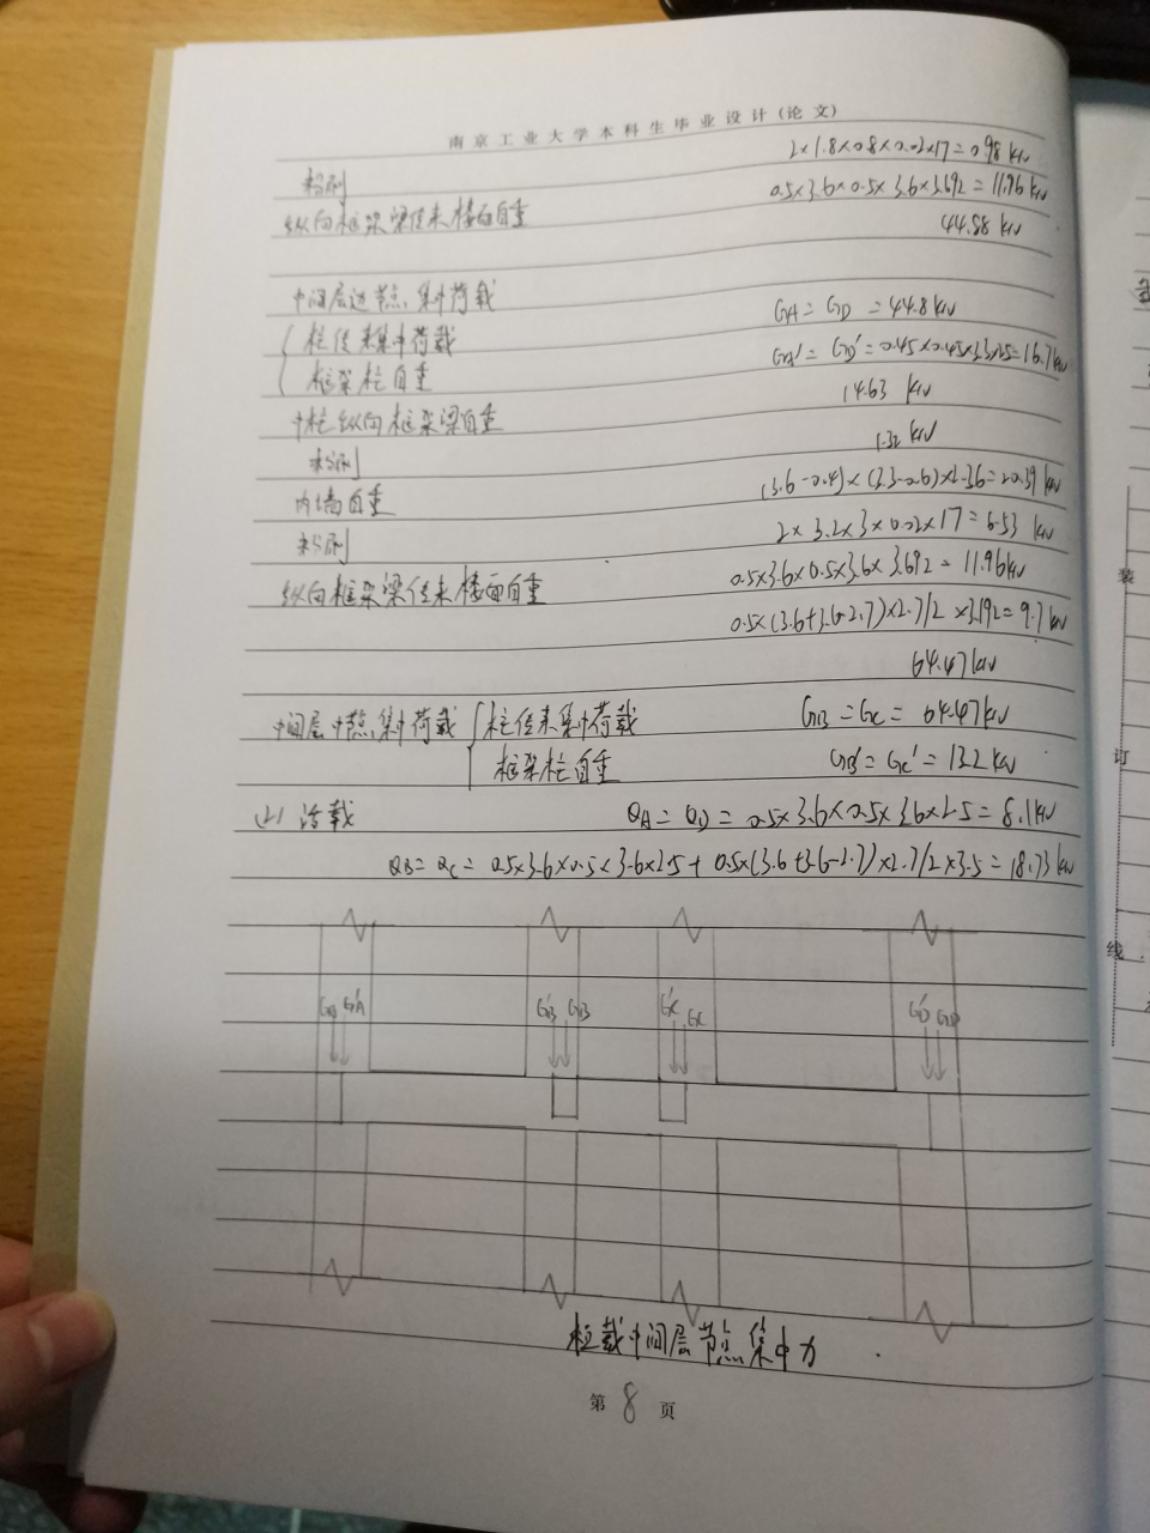 南京工业大学本科生毕业设计(论文)
粉刷 2×1.8×0.8×0.02×17=0.98 kN
纵向框架梁传来楼面自重 0.5×3.6×0.5×3.6×3.692=11.96 kN
44.88 kN
中间层边节点集中荷载 GA=GD=44.8kN
柱传来集中荷载 GA'=GD'=0.45×0.45×3.3×25=16.7kN
框架柱自重 14.63 kN
中柱纵向框架梁自重 1.32 kN
粉刷
内墙自重 (3.6-0.4)×(3.3-0.6)×2.36=20.39 kN
粉刷 2×3.2×3×0.02×17=6.53 kN
纵向框架梁传来楼面自重 0.5×3.6×0.5×3.6×3.692=11.96kN
0.5×(3.6+3.6-2.7)×2.7/2×3.192=9.7kN
64.47kN
中间层中节点集中荷载 柱传来集中荷载 GB=GC=64.47kN
框架柱自重 GB'=GC'=13.2kN
(2) 活载 QA=QD=0.5×3.6×0.5×3.6×2.5=8.1kN
QB=QC=0.5×3.6×0.5×3.6×2.5+0.5×(3.6+3.6-2.7)×2.7/2×3.5=18.73kN
GA'
GB' GB
GC' GC
GD' GD
恒载中间层节点集中力
第8页
装
订
线